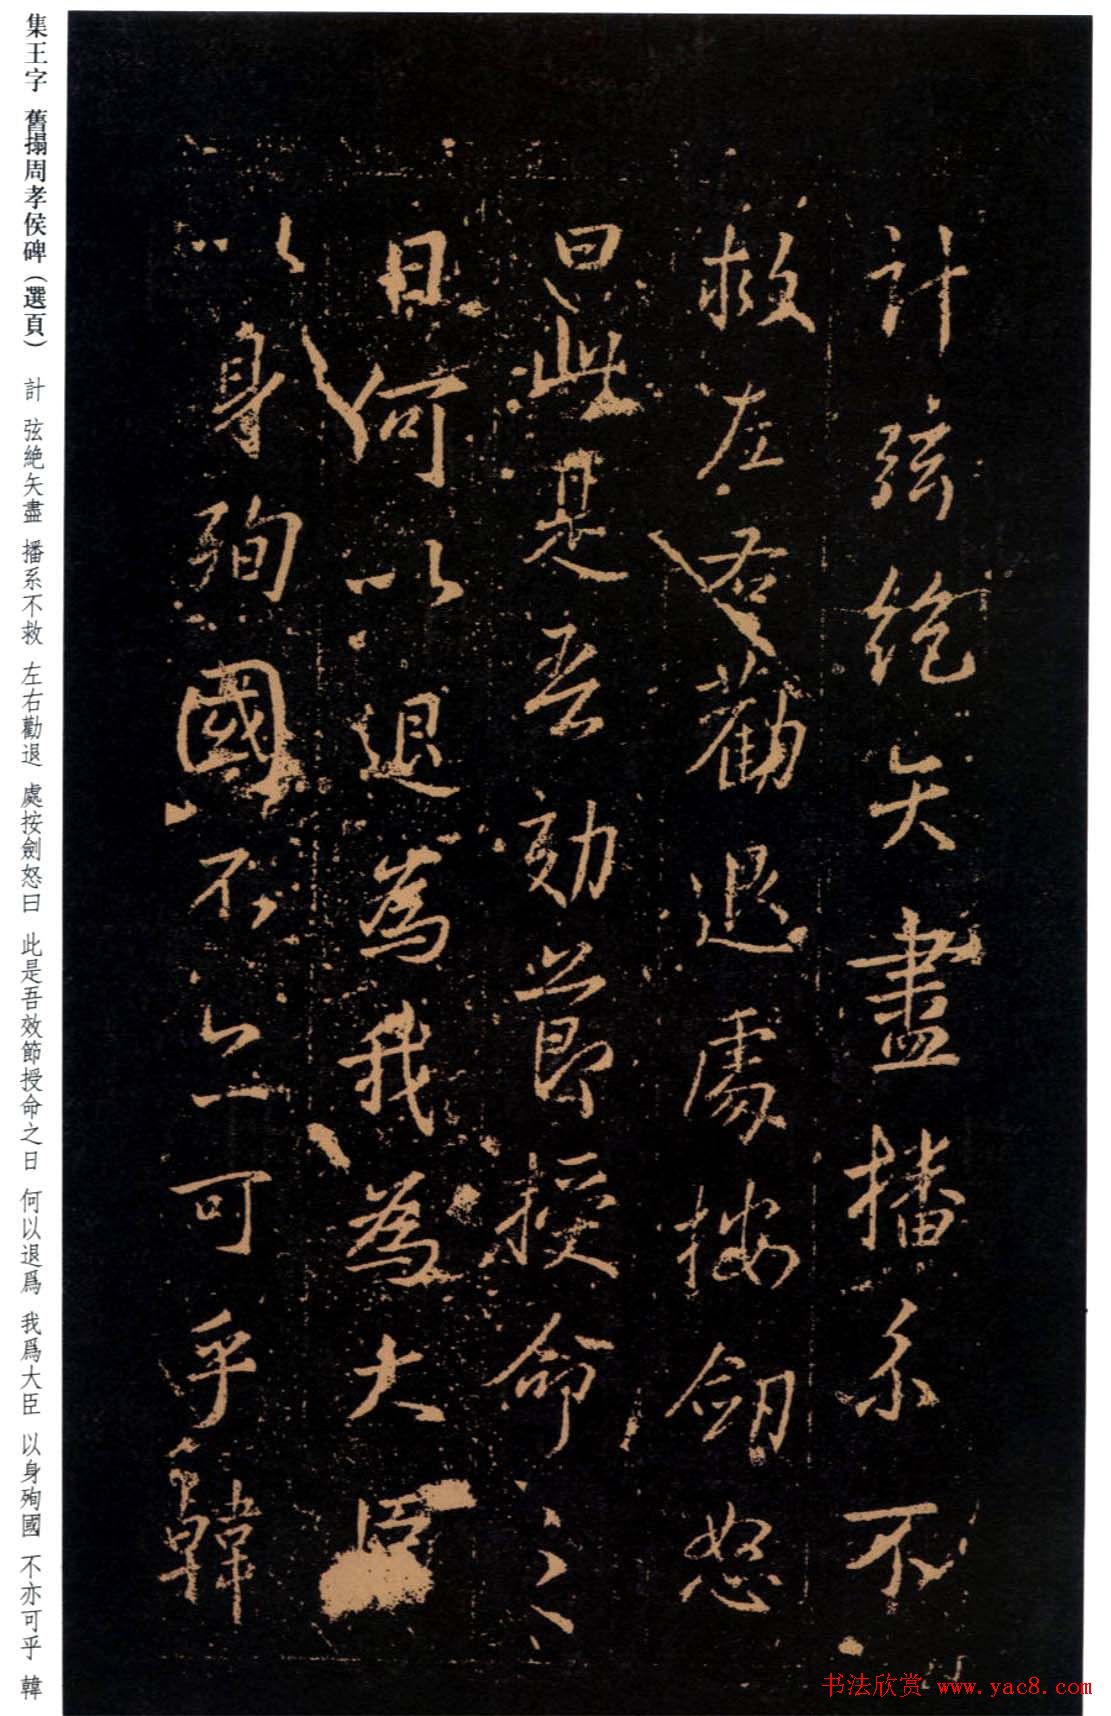 集王字 舊搨周孝侯碑（選頁） 計 弦絶矢盡 播系不救 左右勸退 處按劍怒曰 此是吾效節授命之日 何以退爲 我爲大臣 以身殉國 不亦可乎 韓
計弦絶矢盡播系不
救左右勸退處按劒怒
曰此是吾効節授命之
日何以退為我為大臣
以身殉國不亦可乎韓
书法欣赏 www.yac8.com